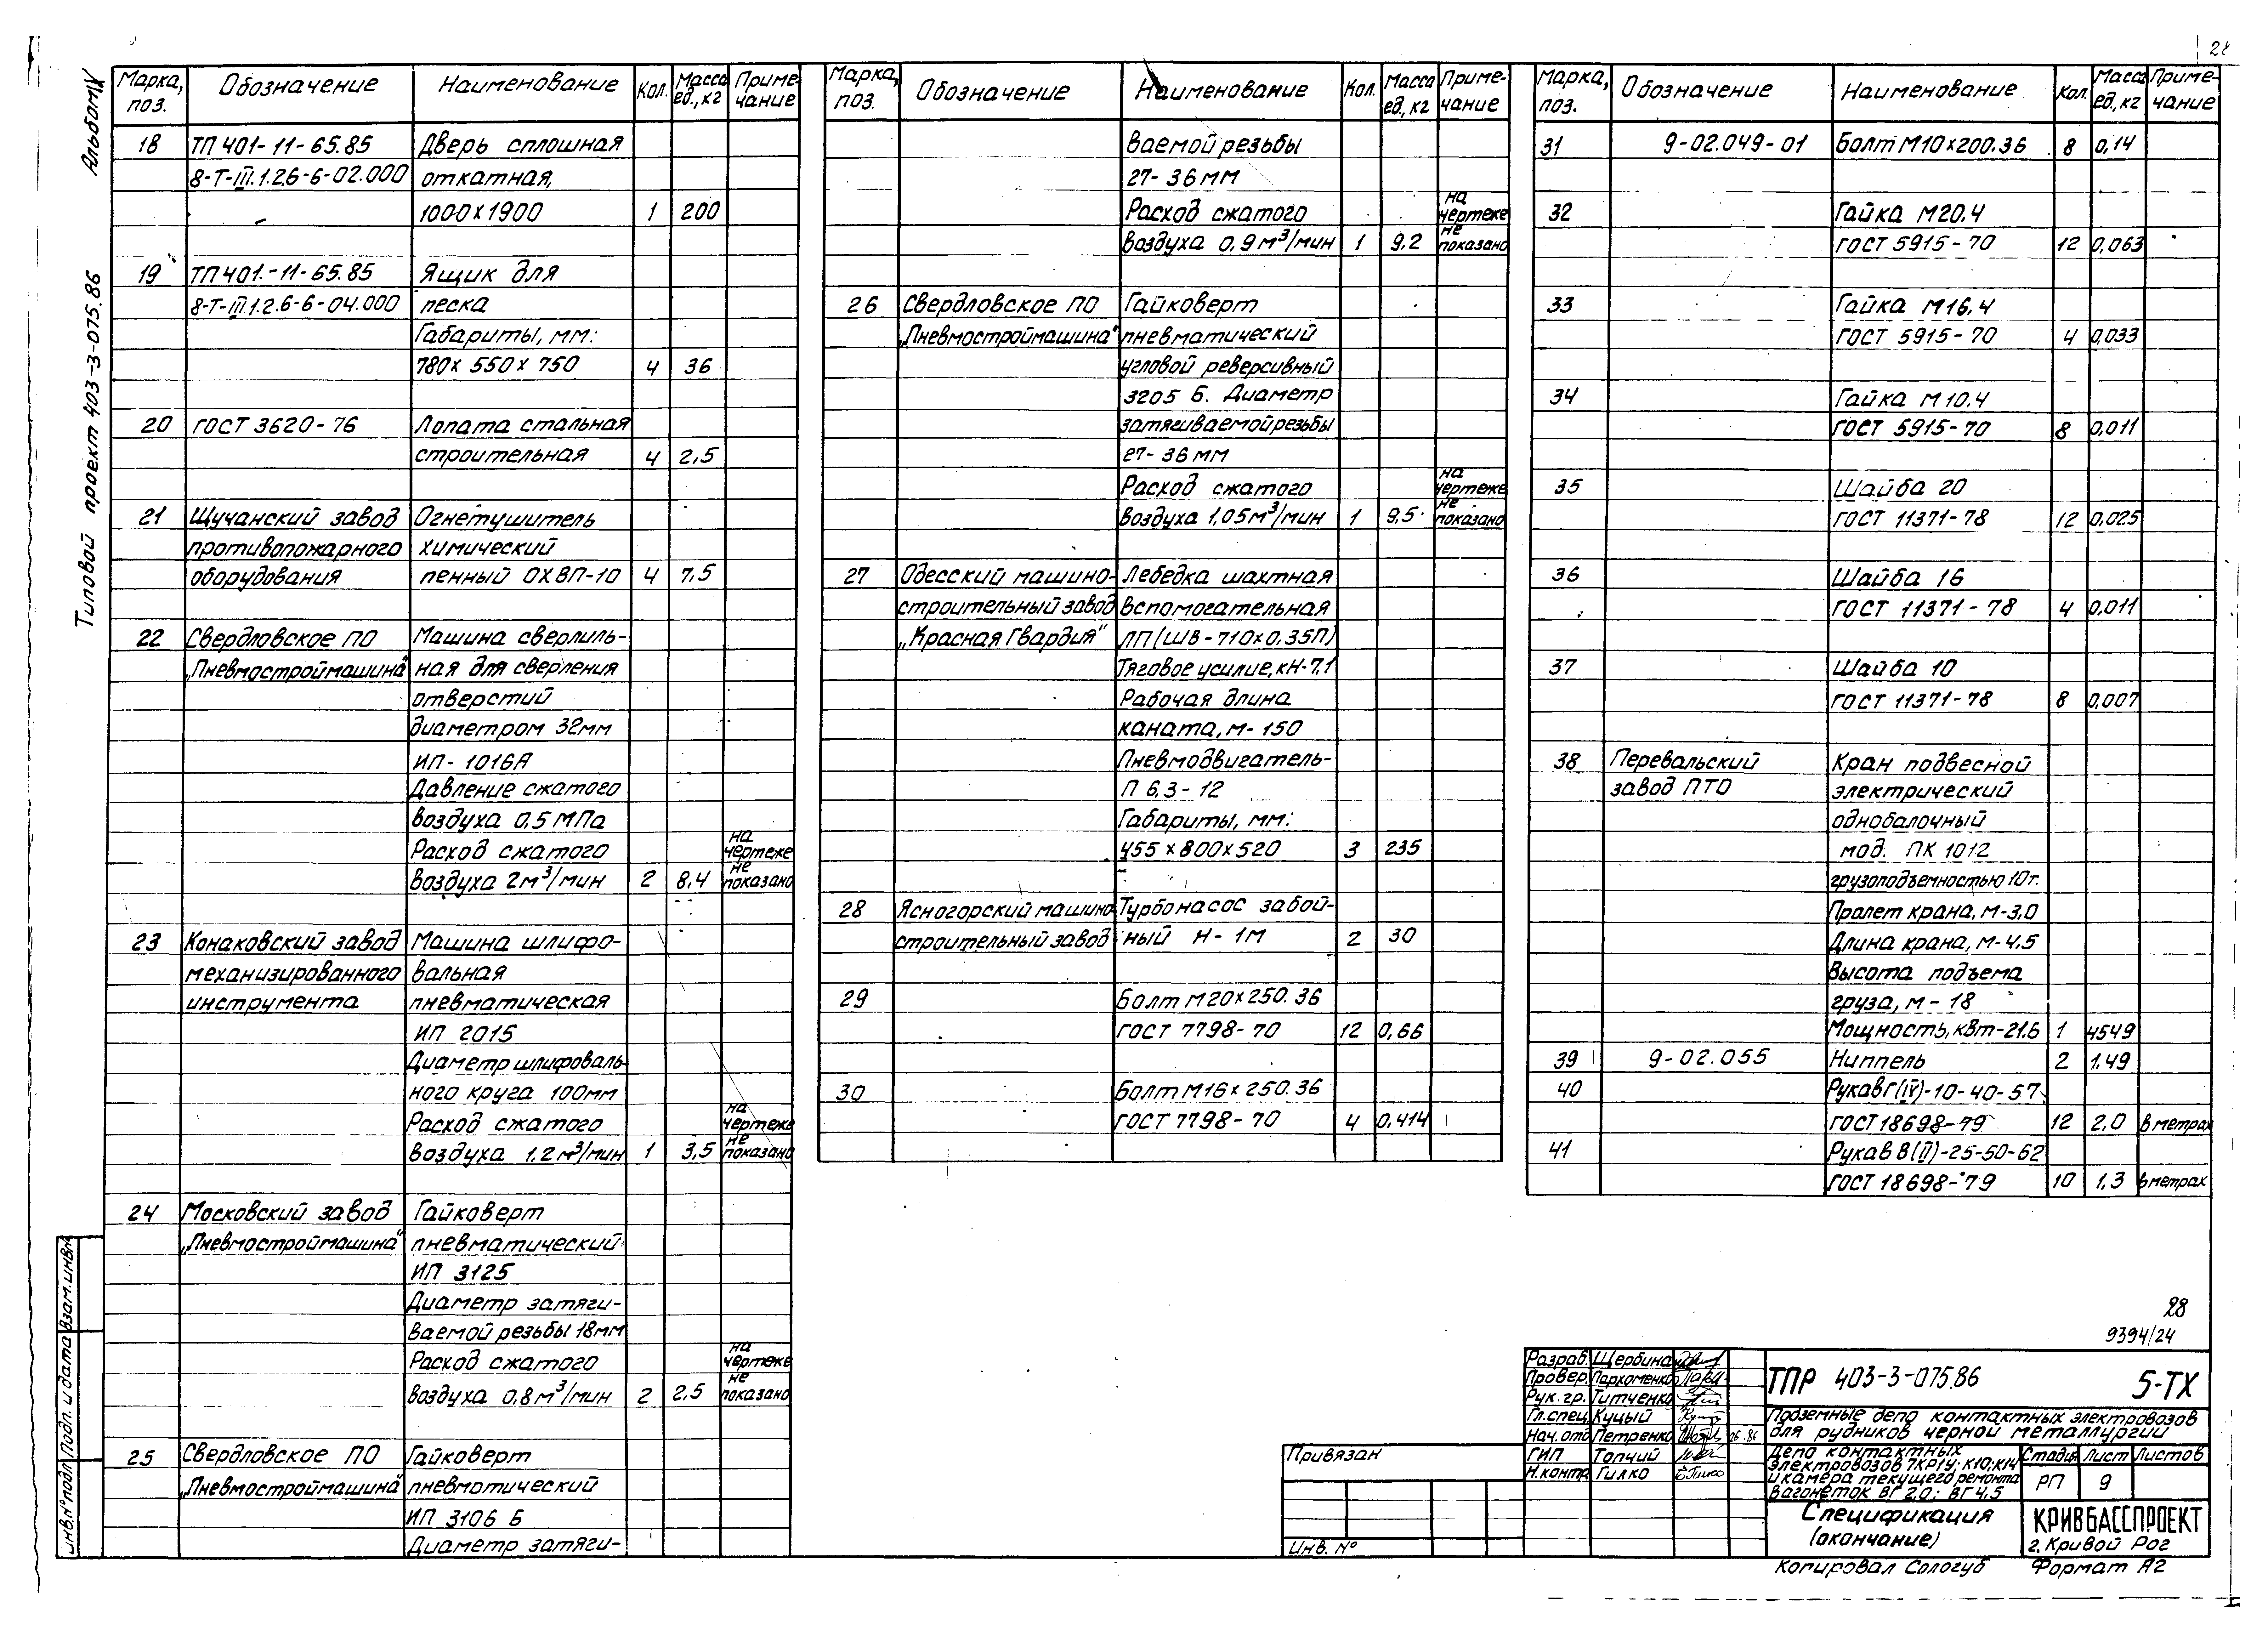 28
Альбом IV
Типовой проект 403-3-075.86
Марка, поз. Обозначение Наименование Кол. Масса ед., кг Приме-чание
18 ТП 401-11-65.85 Дверь сплошная
8-Т-III.1.2.6-6-02.000 откатная,
1000х1900 1 200
19 ТП 401.-11-65.85 Ящик для
8-Т-III.1.2.6-6-04.000 песка
Габариты, мм:
780х 550х 750 4 36
20 ГОСТ 3620-76 Лопата стальная
строительная 4 2,5
21 Щучанский завод Огнетушитель
противопожарного химический
оборудования пенный ОХВП-10 4 7,5
22 Свердловское ПО Машина сверлиль-
„Пневмостроймашина" ная для сверления
отверстий
диаметром 32мм
ИП-1016А
Давление сжатого
воздуха 0,5 МПа
Расход сжатого на чертеже
воздуха 2м³/мин 2 8,4 не показано
23 Конаковский завод Машина шлифо-
механизированного вальная
инструмента пневматическая
ИП 2015
Диаметр шлифоваль-
ного круга 100мм
Расход сжатого на чертеже
воздуха 1,2м³/мин 1 3,5 не показано
24 Московский завод Гайковерт
„Пневмостроймашина" пневматический
ИП 3125
Диаметр затяги-
ваемой резьбы 18мм
Расход сжатого на чертеже
воздуха 0,8м³/мин 2 2,5 не показано
25 Свердловское ПО Гайковерт
„Пневмостроймашина" пневмотический
ИП 3106 Б
Диаметр затяги-
Марка, поз. Обозначение Наименование Кол. Масса ед., кг Приме-чание
ваемой резьбы
27-36мм
Расход сжатого на чертеже
воздуха 0,9м³/мин 1 9,2 не показано
26 Свердловское ПО Гайковерт
„Пневмостроймашина" пневматический
угловой реверсивный
3205 Б. Диаметр
затягиваемой резьбы
27-36мм
Расход сжатого на чертеже
воздуха 1,05м³/мин 1 9,5 не показано
27 Одесский машино- Лебедка шахтная
строительный завод вспомогательная
„Красная Гвардия" ЛП(ШВ-710х0,35П)
Тяговое усилие, кН-7,1
Рабочая длина
каната, м-150
Пневмодвигатель-
П 6,3-12
Габариты, мм:
455х800х520 3 235
28 Ясногорский машино Турбонасос забой-
строительный завод ный Н-1М 2 30
29 Болт М20х250.36
ГОСТ 7798-70 12 0,66
30 Болт М16х250.36
ГОСТ 7798-70 4 0,414
Марка, поз. Обозначение Наименование Кол. Масса ед., кг Приме-чание
31 9-02.049-01 Болт М10х200.36 8 0,14
32 Гайка М20.4
ГОСТ 5915-70 12 0,063
33 Гайка М16.4
ГОСТ 5915-70 4 0,033
34 Гайка М10.4
ГОСТ 5915-70 8 0,011
35 Шайба 20
ГОСТ 11371-78 12 0,025
36 Шайба 16
ГОСТ 11371-78 4 0,011
37 Шайба 10
ГОСТ 11371-78 8 0,007
38 Перевальский Кран подвесной
завод ПТО электрический
однобалочный
мод. ПК 1012
грузоподъемностью 10т.
Пролет крана, м-3,0
Длина крана, м-4.5
Высота подъема
груза, м-18
Мощность, кВт-21.6 1 4549
39 9-02.055 Ниппель 2 1,49
40 Рукав Г(IV)-10-40-57
ГОСТ 18698-79 12 2,0 в метрах
41 Рукав В(II)-25-50-62
ГОСТ 18698-79 10 1,3 в метрах
28
9394/24
Взам. инв.№
Подп. и дата
Инв.№ подл
Привязан
Инв. №
Разраб. Щербина
Провер. Пархоменко
Рук. гр. Титченко
Гл.спец. Куцый
Нач.отд Петренко 06.86
ГИП Топчий
Н.контр Гилко
ТПР 403-3-075.86 5-ТХ
Подземные депо контактных электровозов
для рудников черной металлургии
Депо контактных
электровозов 7КР1У; К10; К14
и камера текущего ремонта
вагонеток ВГ 2,0; ВГ 4,5
Стадия Лист Листов
РП 9
Спецификация
(окончание)
КРИВБАССПРОЕКТ
г. Кривой Рог
Копировал Сологуб Формат А2